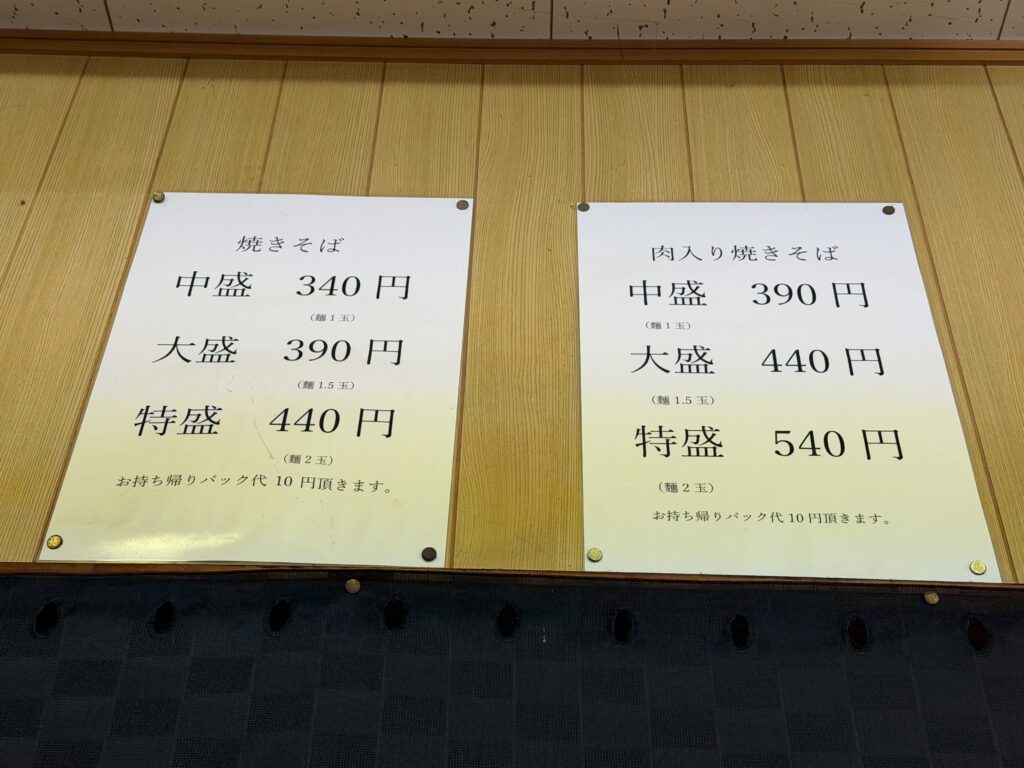 焼きそば
中盛 340 円
（麺 1 玉）
大盛 390 円
（麺 1.5 玉）
特盛 440 円
（麺 2 玉）
お持ち帰りパック代 10 円頂きます。
肉入り焼きそば
中盛 390 円
（麺 1 玉）
大盛 440 円
（麺 1.5 玉）
特盛 540 円
（麺 2 玉）
お持ち帰りパック代 10 円頂きます。